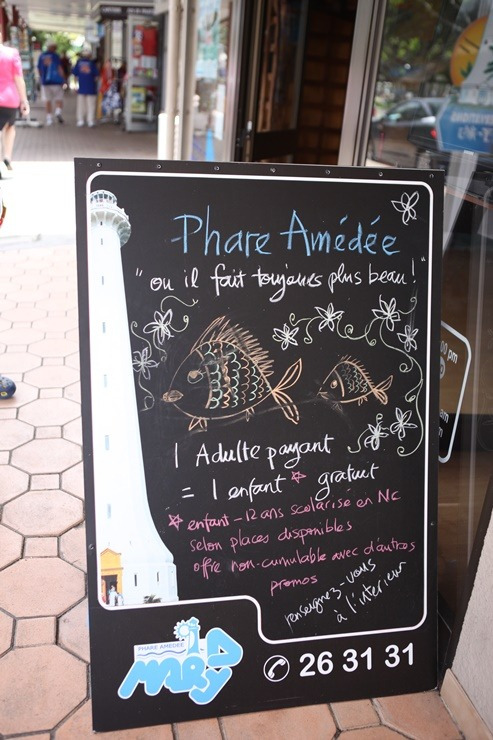 Phare Amédée
"ou il fait toujours plus beau!"
1 Adulte payant
= 1 enfant * gratuit
* enfant -12 ans scolarisé en NC
selon places disponibles
offre non-cumulable avec d'autres
promos
renseignez-vous
à l'intérieur
PHARE AMEDEE
MARY D
26 31 31